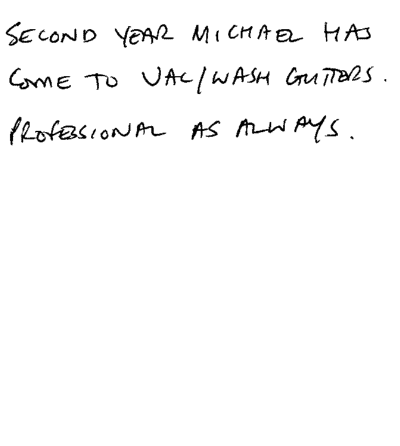 SECOND YEAR MICHAEL HAS
COME TO VAC/WASH GUTTERS.
PROFESSIONAL AS ALWAYS.